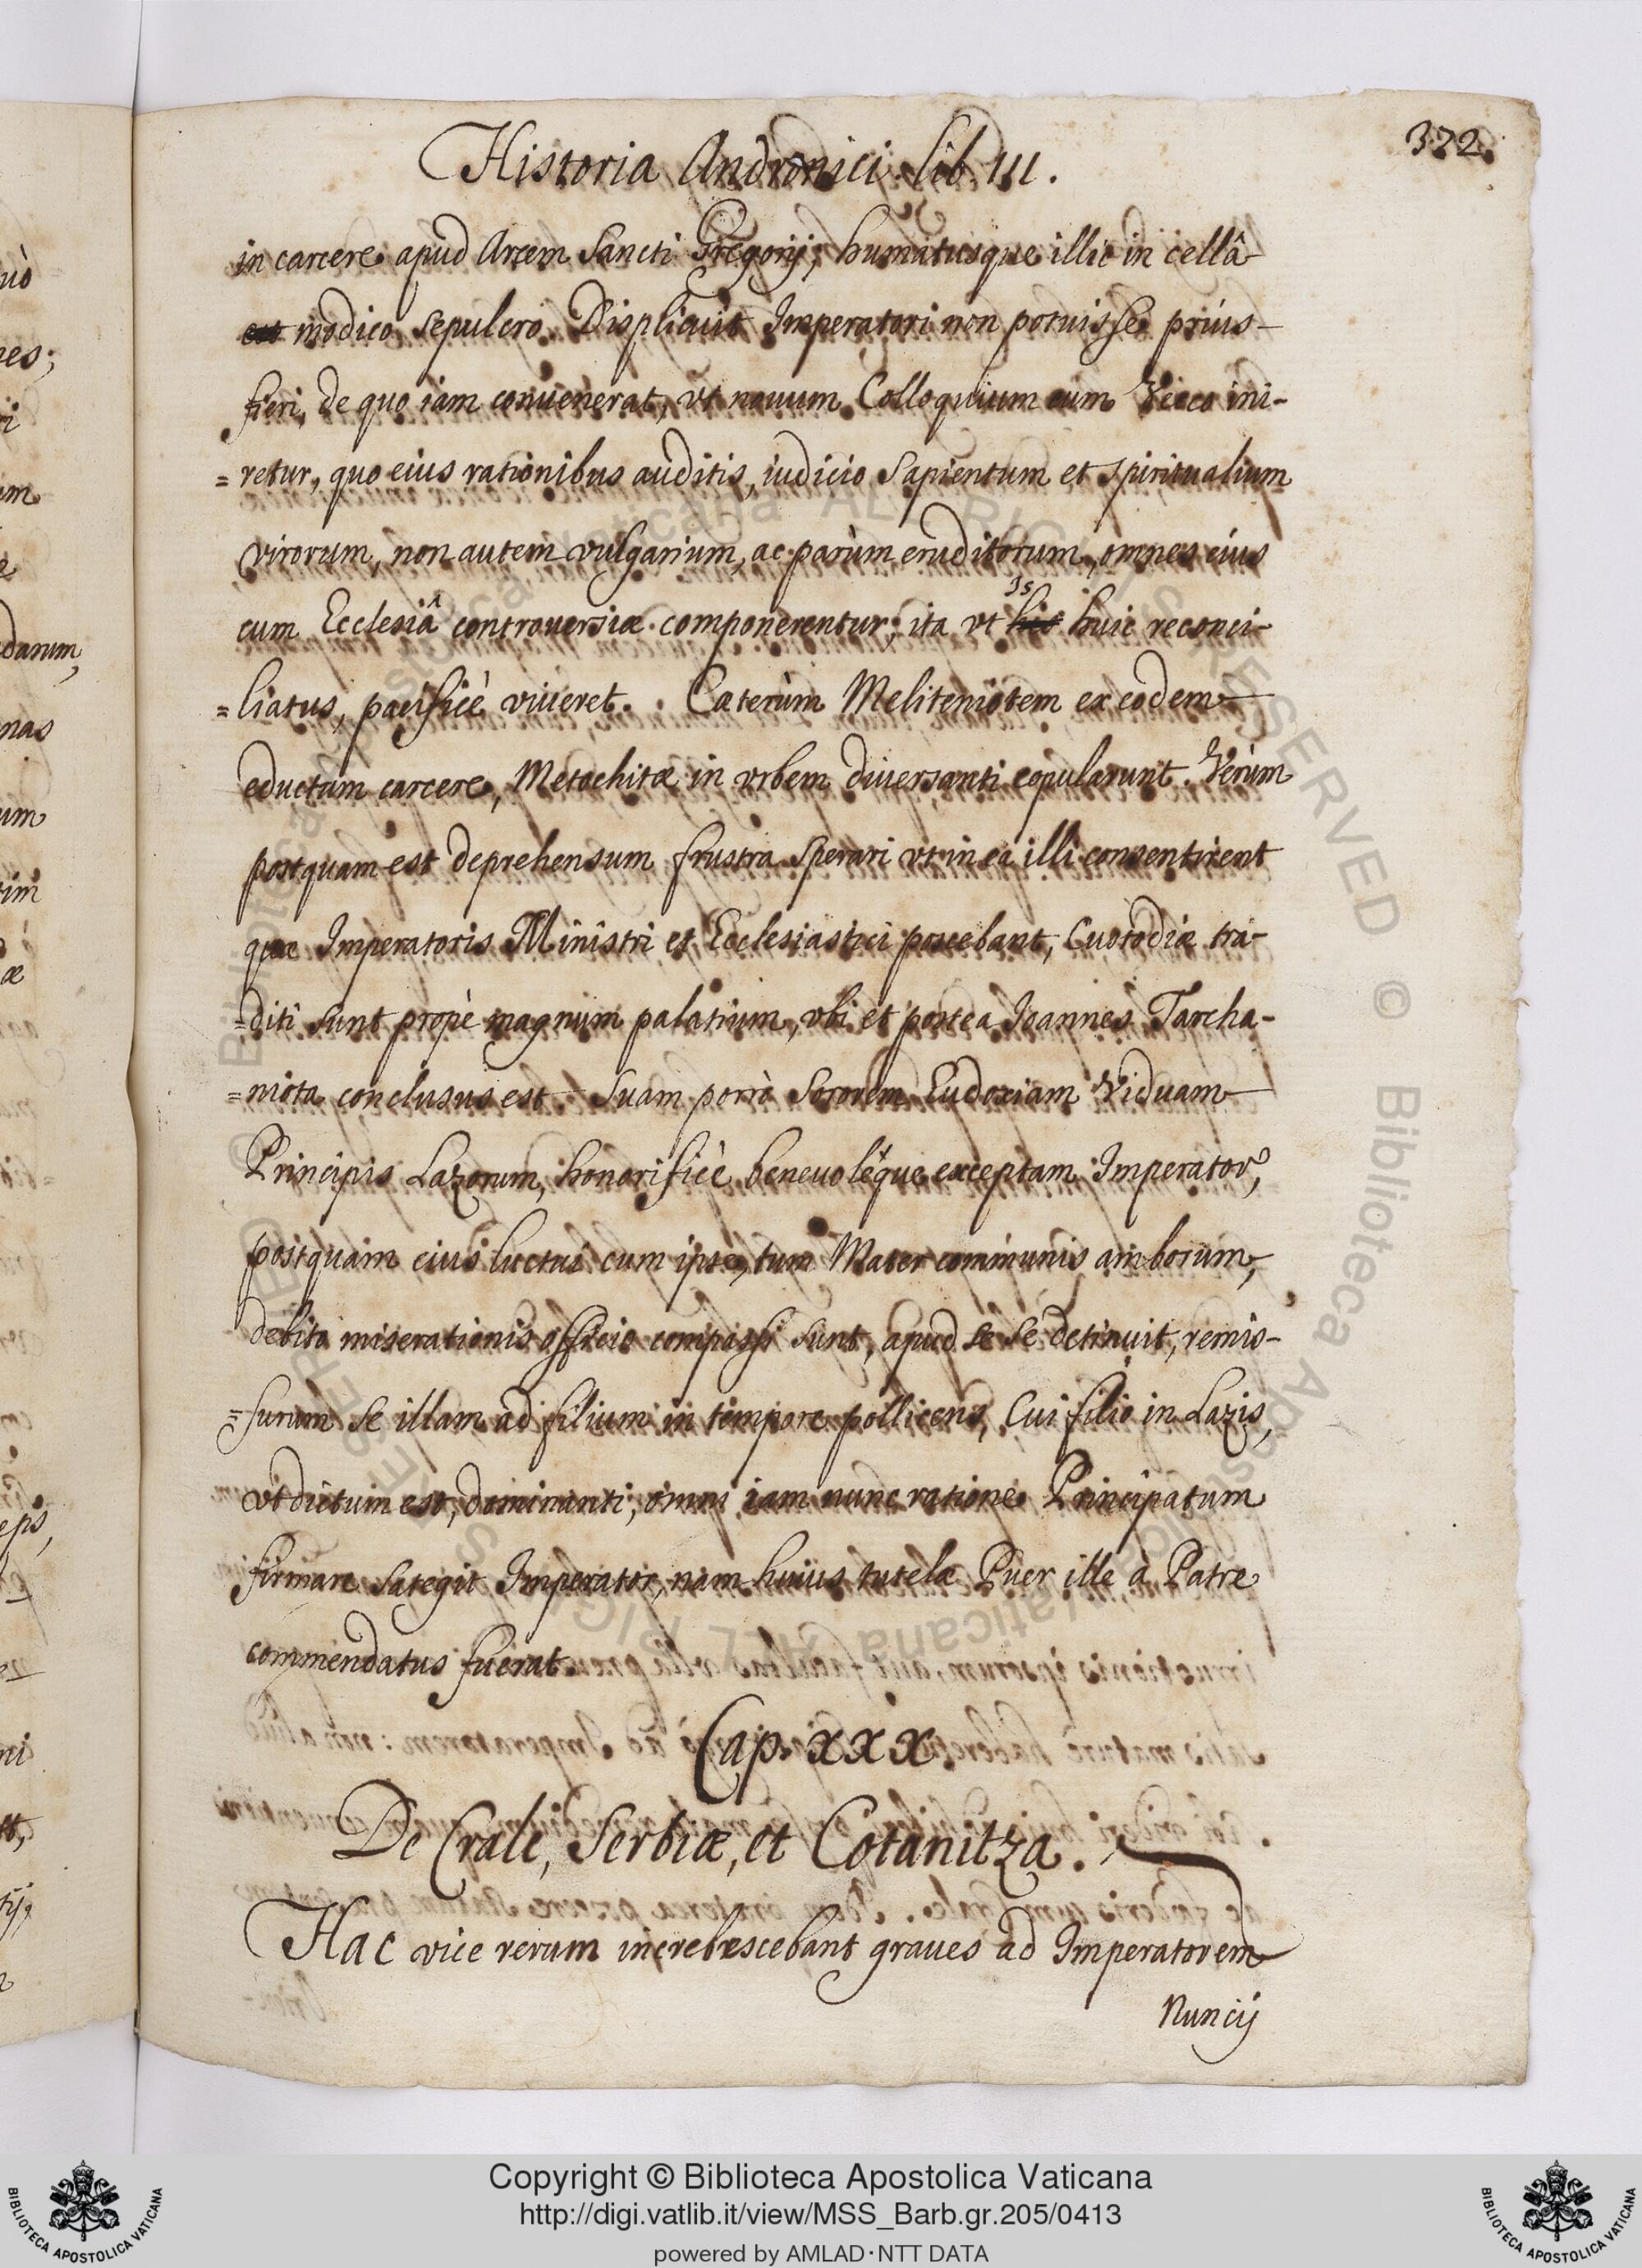 372.
Historia Andronici. lib. III.
in carcere apud Arcem Sancti Gregorij; humatusque illic in cellâ
modico sepulcro. Displicuit Imperatori non potuisse priùs
fieri, de quo iam conuenerat, vt nouum Colloquium cum Vecco ini-
=retur, quo eius rationibus auditis, iudicio Sapientum et spiritualium
virorum, non autem vulgarium, ac parùm eruditorum, omnes eius
cum Ecclesiâ controuersiæ componerentur; ita vt Is huic reconci-
=liatus, pacificè viueret. Cæterùm Meliteniotem ex eodem
eductum carcere, Metochitæ in vrbem diuersanti copularunt. Verùm
postquam est deprehensum frustra sperari vt in ea illi consentirent
quæ Imperatoris Ministri et Ecclesiastici poscebant, Custodiæ tra-
=diti sunt propè magnum palatium, vbi et postea Ioannes Tarcha-
=niota conclusus est. Suam porrò Sororem Eudoxiam Viduam
Principis Lazorum, honorificè beneuolèque exceptam Imperator,
postquam eius luctui cum ipse, tum Mater communis amborum,
debito miserationis officio compassi sunt, apud se se detinuit, remis-
=surum se illam ad filium in tempore pollicens, Cui filio in Lazis,
vt dictum est, dominanti, omni iam nunc ratione Principatum
firmare sategit Imperator, nam huius tutelæ Puer ille à Patre
commendatus fuerat.
Cap. XXX.
De Crale, Serbiæ, et Cotanitza.
Hac vice rerum increbrescebant graues ad Imperatorem
Nuncij
Copyright © Biblioteca Apostolica Vaticana
http://digi.vatlib.it/view/MSS_Barb.gr.205/0413
powered by AMLAD·NTT DATA